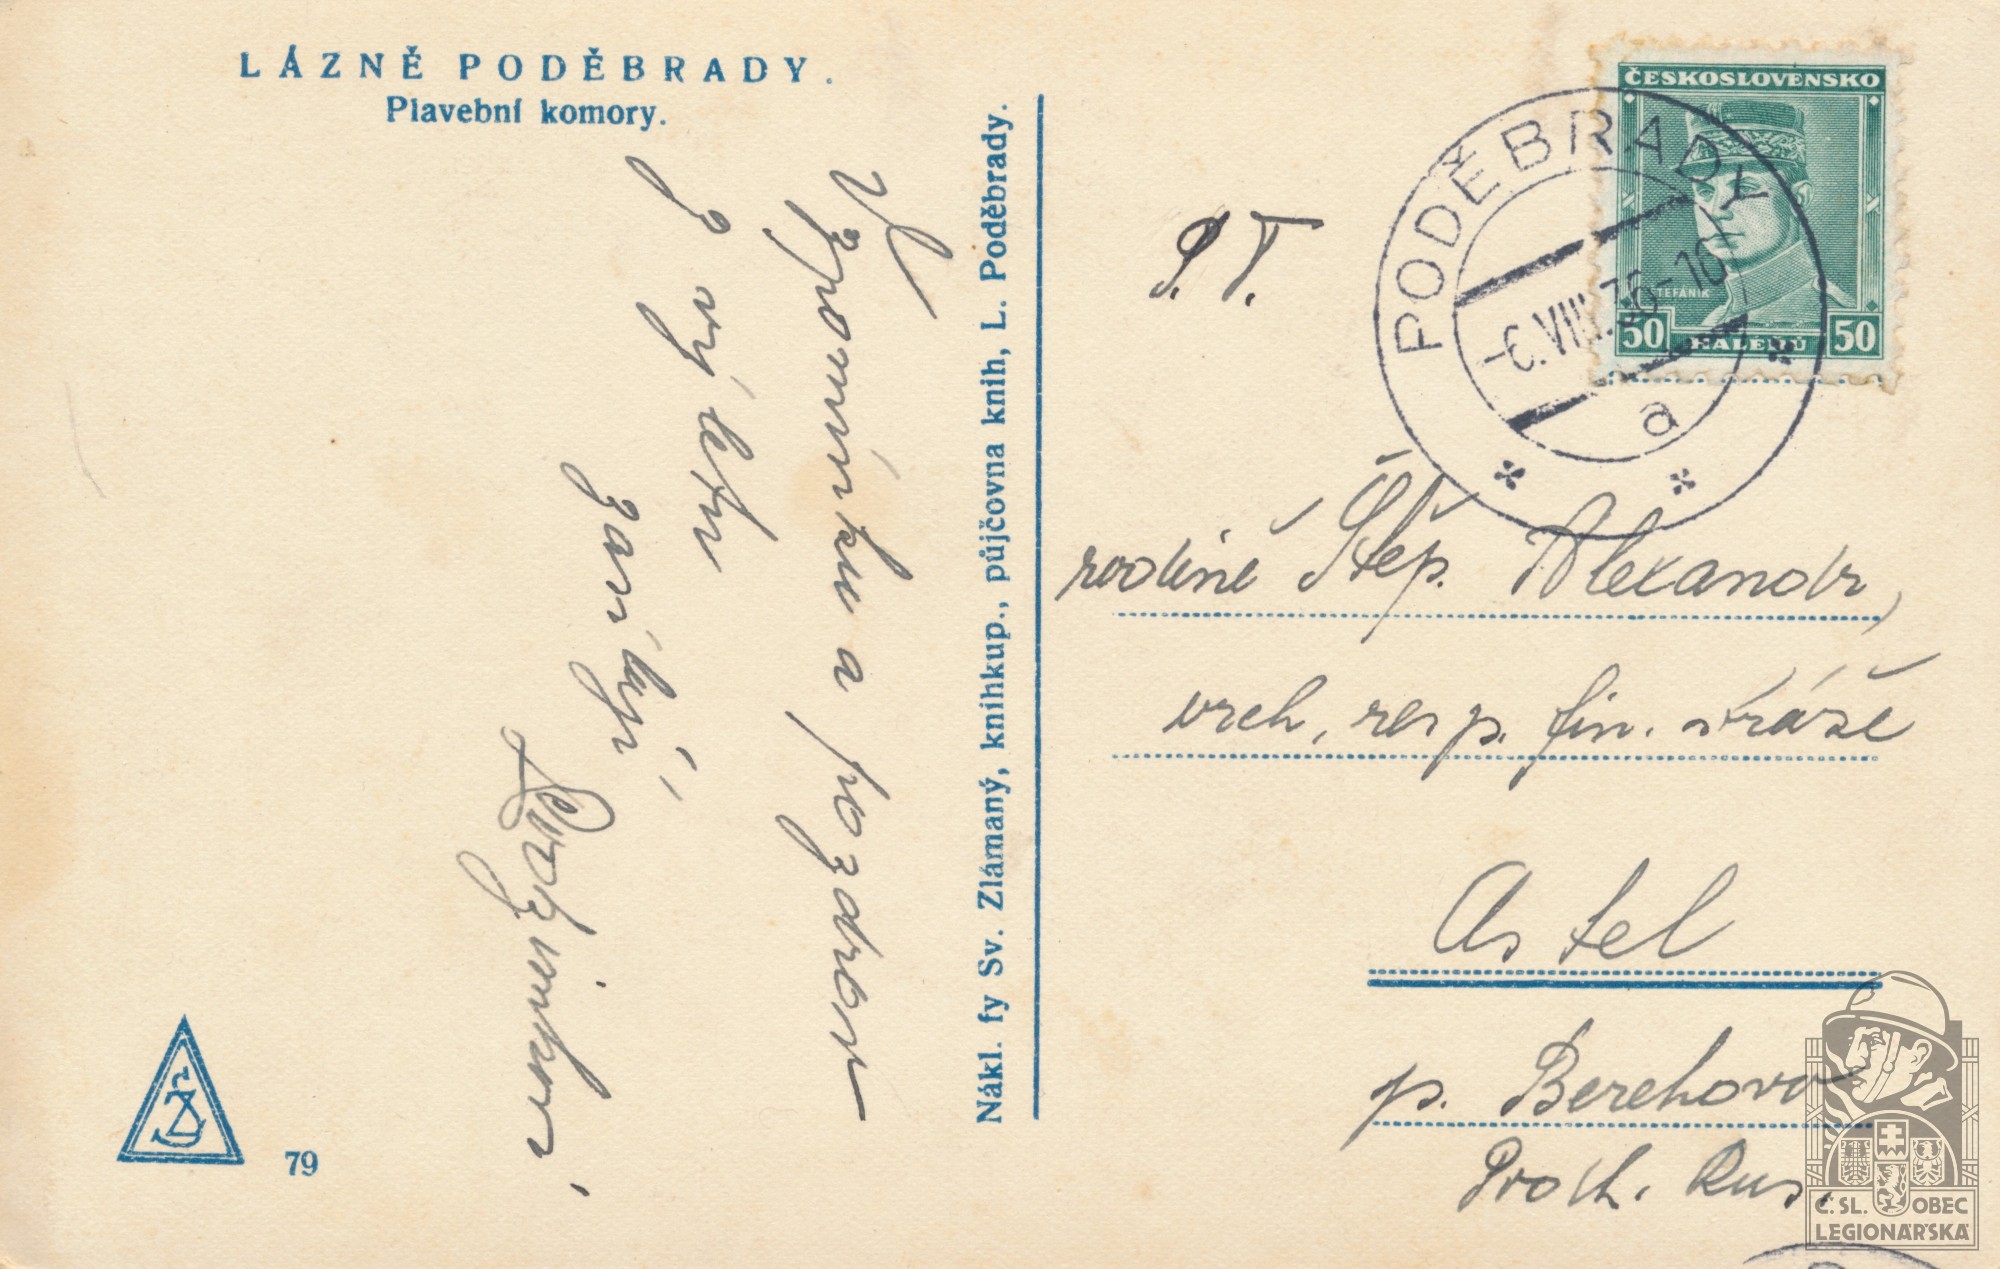 LÁZNĚ PODĚBRADY.
Plavební komory.
V
zpomínku a pozdrav
z výletu
zasílají
79
Nákl. fy Sv. Zlámaný, knihkup., půjčovna knih, L. Poděbrady.
ČESKOSLOVENSKO
ŠTEFÁNIK
50 HALÉŘŮ 50
PODĚBRADY
-6.VIII.36-10
a
P.T.
rodině Štěp. Alexandr,
vrch. resp. fin. stráže
Astel
p. Berehovo
Podk. Rus.
Č. SL. OBEC
LEGIONÁŘSKÁ